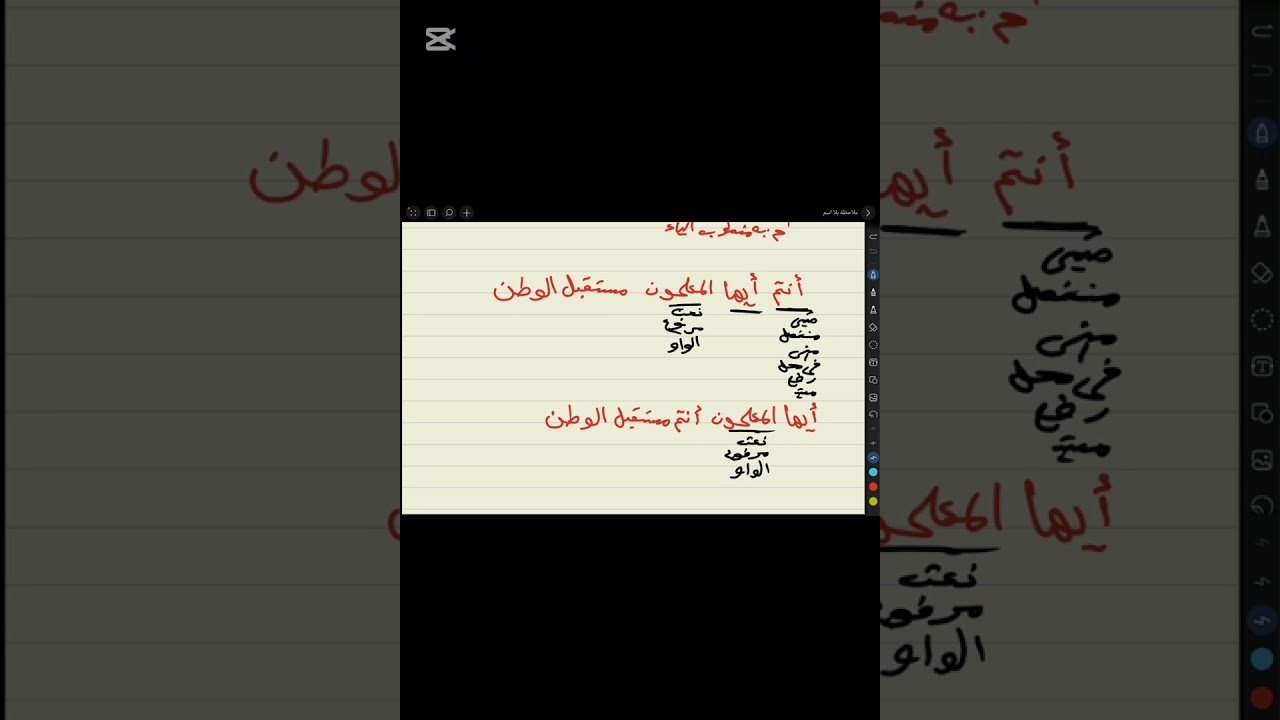 ملاحظة بلا اسم
م به منصوب الياء
أنتم أيها المعلمون مستقبل الوطن
ضمير
منفصل
مبنى
فى محل
رفع
مبتدأ
نعت
مرفوع
الواو
أيها المعلمون أنتم مستقبل الوطن
نعت
مرفوع
الواو